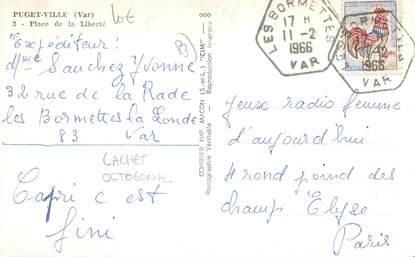 PUGET-VILLE (Var)
2 - Place de la Liberté
Lot
Expéditeur:
Mme Sanchez Yvonne
32 rue de la Rade
les Bormettes la Londe
83 Var
CACHET
OCTOGONAL
Capri c est
fini
COMBIER IMP. MACON (S.-et-L.) "CIM"
Photographie Véritable - Reproduction Interdite
LES BORMETTES
17 H
11-2
1966
VAR
LES BORMETTES
1966
VAR
Jeux radio femme
d'aujourd'hui
4 rond point des
champ Elyse
Paris